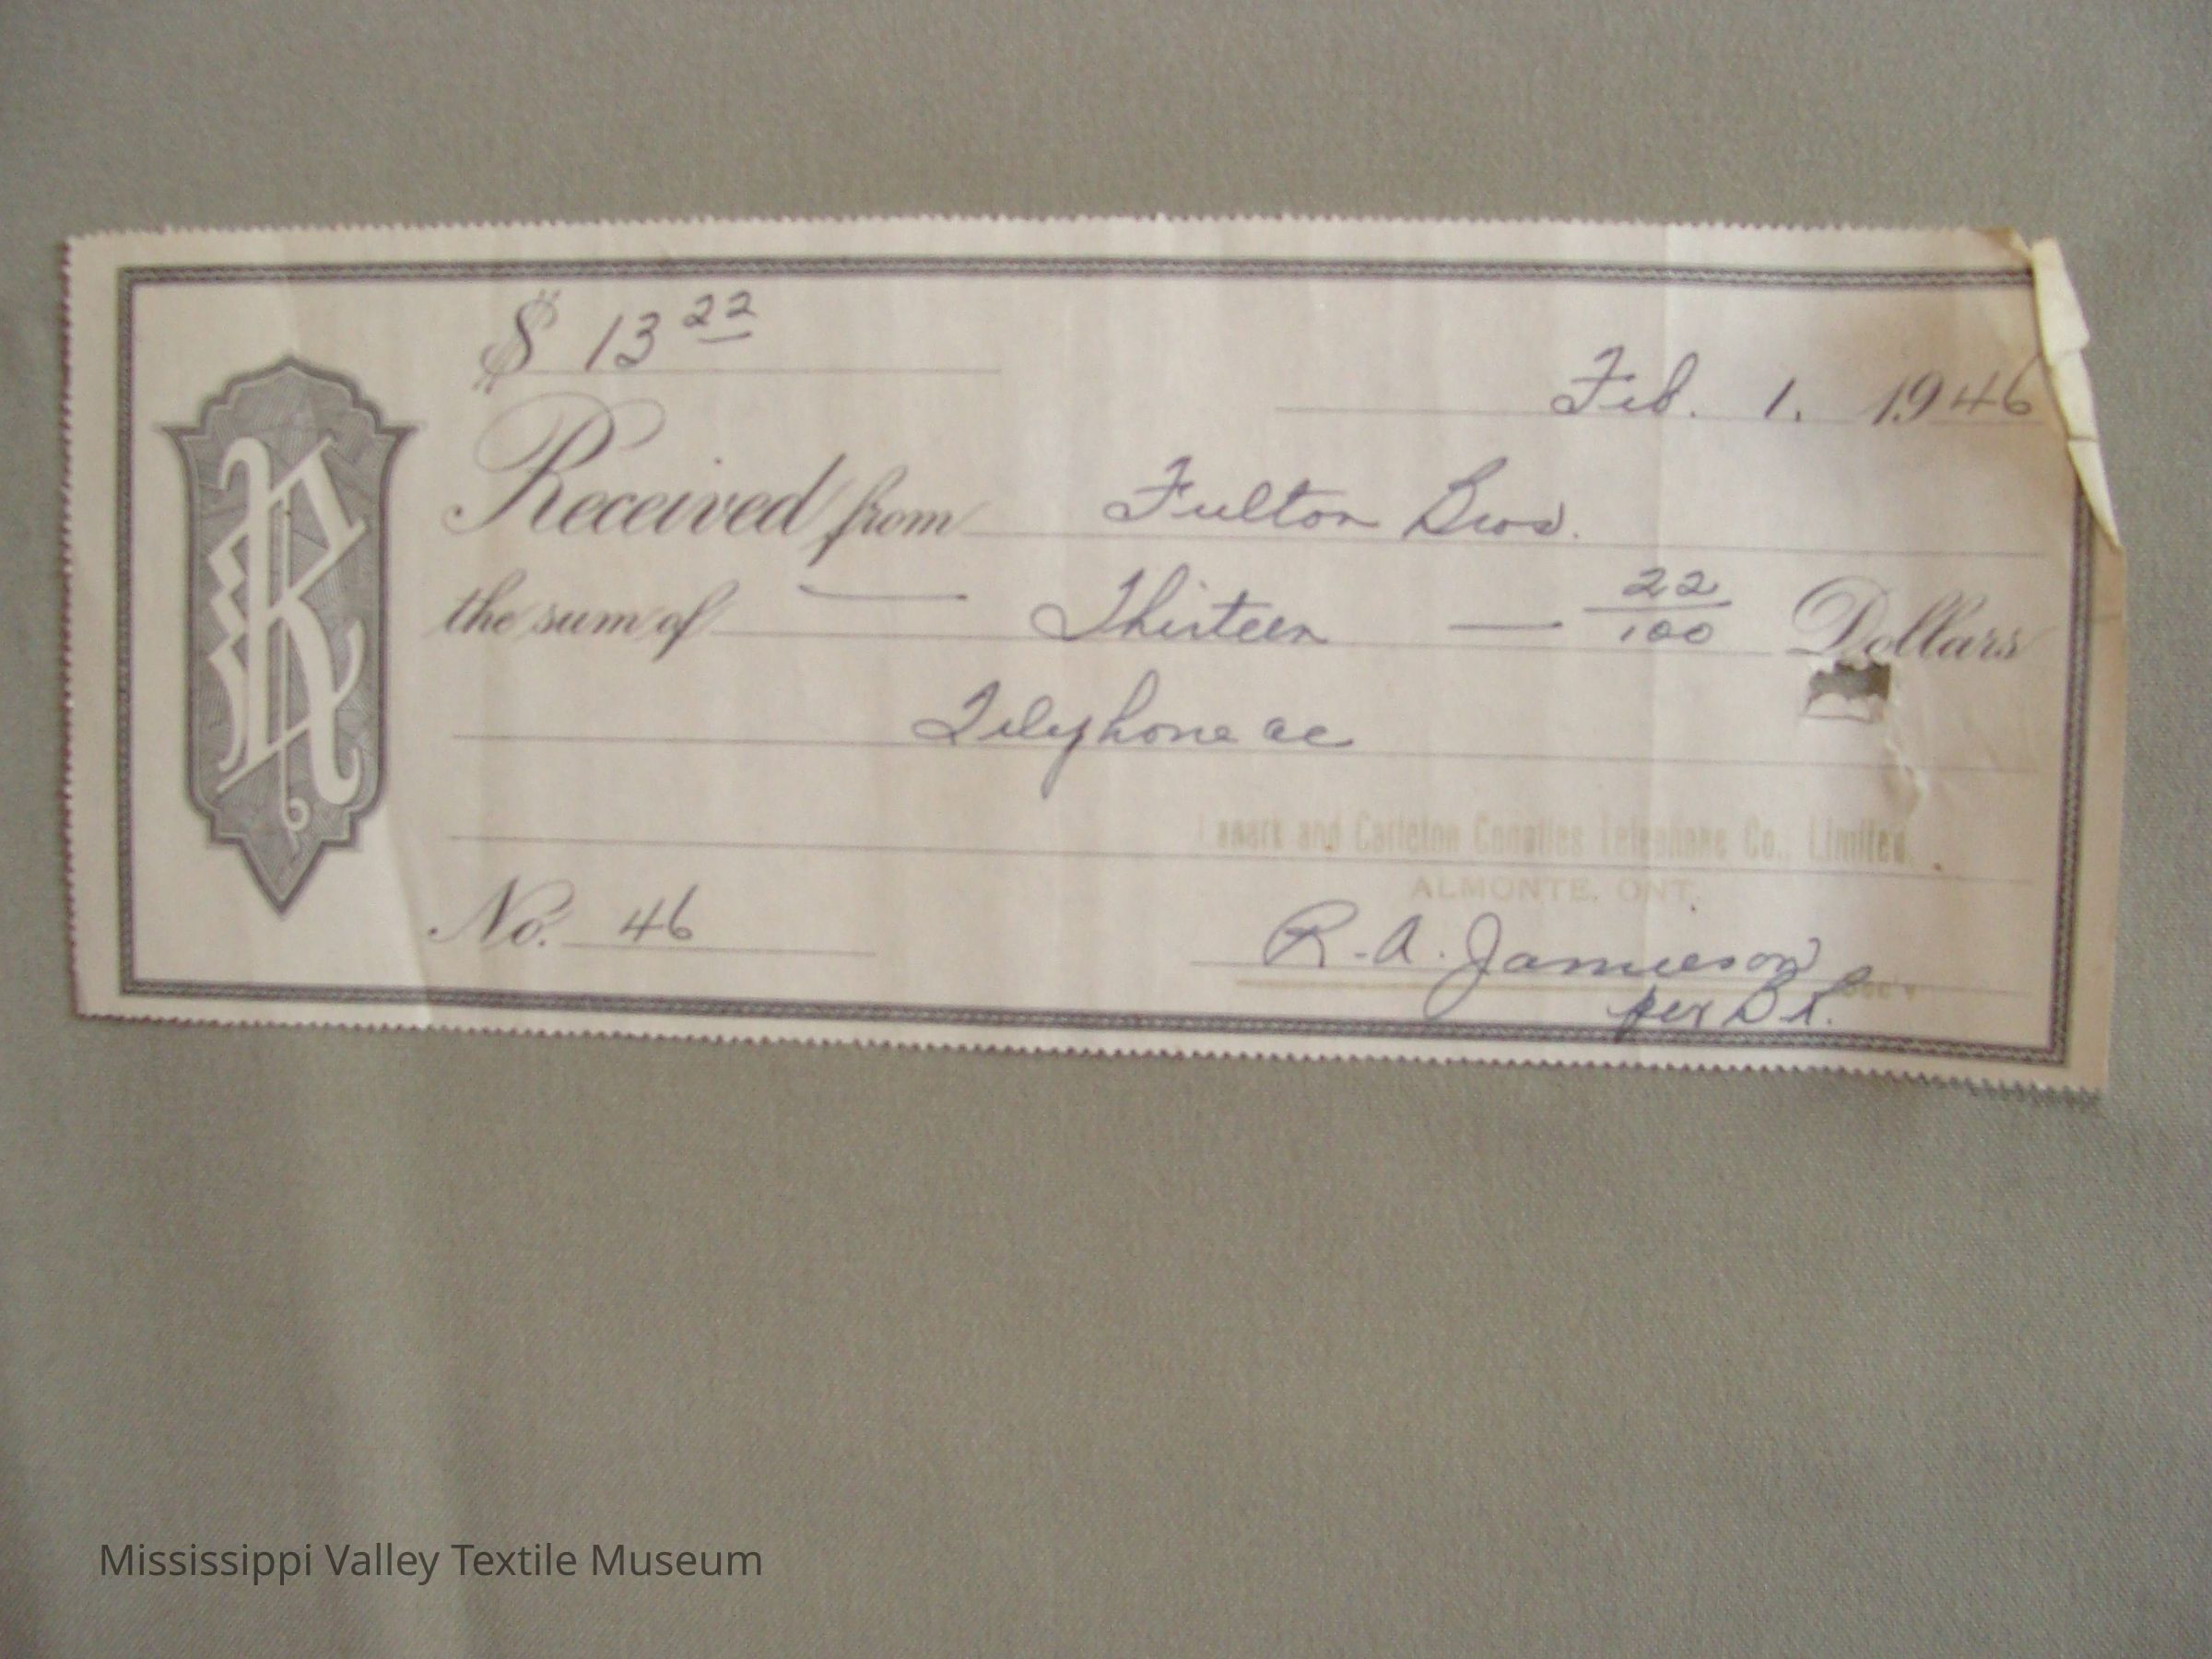 $ 13 22
Feb. 1. 1946
Received from Fulton Bros.
the sum of — Thirteen — 22/100 Dollars
Telephone ac
Lanark and Carleton Counties Telephone Co., Limited,
ALMONTE, ONT.
No. 46
R.A. Jamieson
Sec'y
per
R
Mississippi Valley Textile Museum